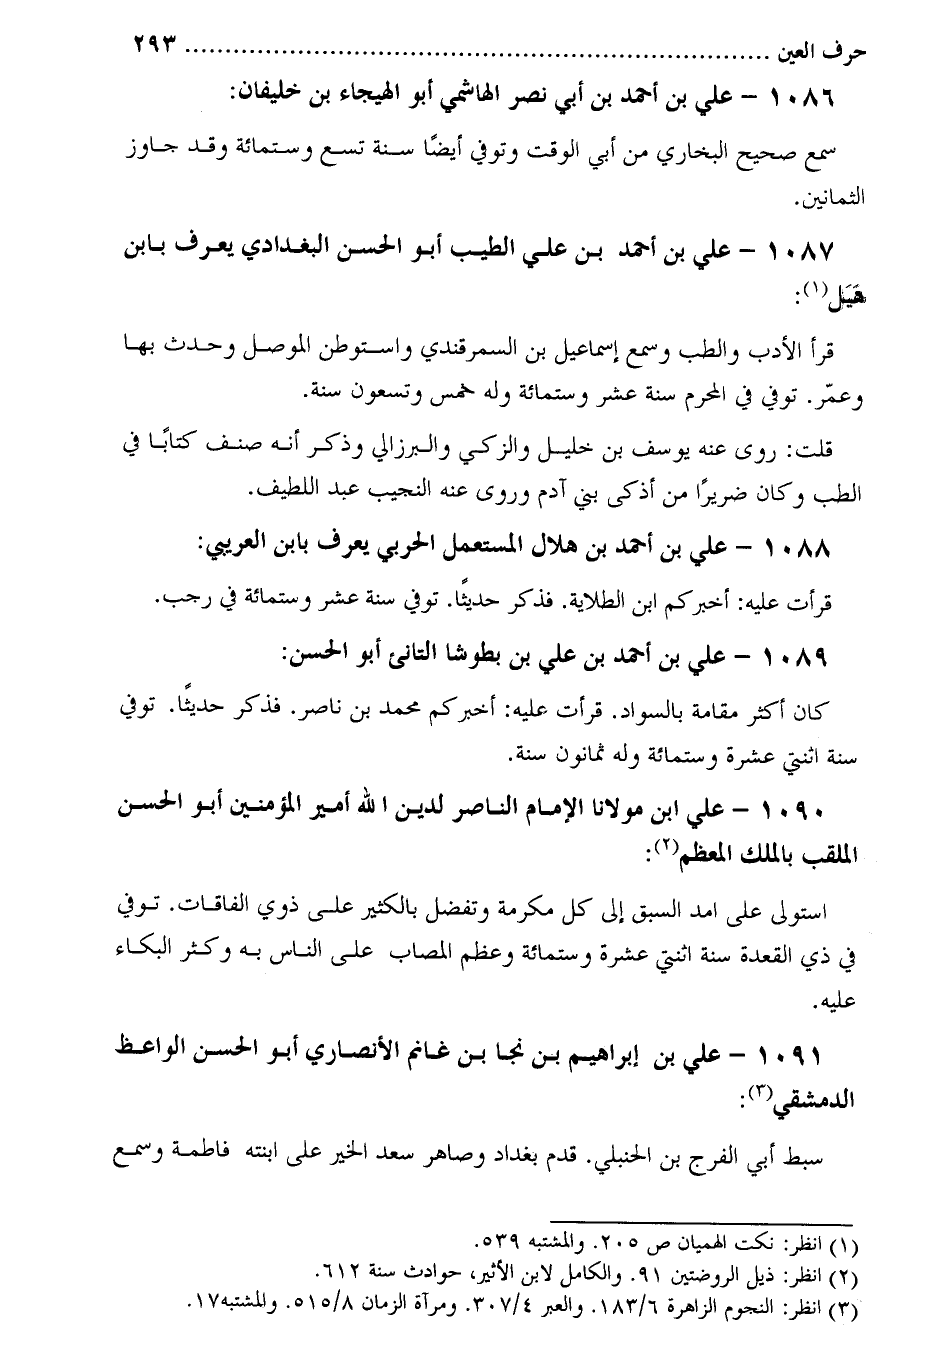 حرف العين ........................................................................ ٢٩٣
١٠٨٦ – علي بن أحمد بن أبي نصر الهاشمي أبو الهيجاء بن خليفان:
سمع صحيح البخاري من أبي الوقت وتوفي أيضًا سنة تسع وستمائة وقد جاوز
الثمانين.
١٠٨٧ – علي بن أحمد بن علي الطيب أبو الحسن البغدادي يعرف بابن
هَبَل(١):
قرأ الأدب والطب وسمع إسماعيل بن السمرقندي واستوطن الموصل وحدث بها
وعمّر. توفي في المحرم سنة عشر وستمائة وله خمس وتسعون سنة.
قلت: روى عنه يوسف بن خليل والزكي والبرزالي وذكر أنه صنف كتابًا في
الطب وكان ضريرًا من أذكى بني آدم وروى عنه النجيب عبد اللطيف.
١٠٨٨ – علي بن أحمد بن هلال المستعمل الحربي يعرف بابن العريبي:
قرأت عليه: أخبركم ابن الطلاية. فذكر حديثًا. توفي سنة عشر وستمائة في رجب.
١٠٨٩ – علي بن أحمد بن علي بن بطوشا التانئ أبو الحسن:
كان أكثر مقامة بالسواد. قرأت عليه: أخبركم محمد بن ناصر. فذكر حديثًا. توفي
سنة اثنتي عشرة وستمائة وله ثمانون سنة.
١٠٩٠ – علي ابن مولانا الإمام الناصر لدين الله أمير المؤمنين أبو الحسن
الملقب بالملك المعظم(٢):
استولى على امد السبق إلى كل مكرمة وتفضل بالكثير على ذوي الفاقات. توفي
في ذي القعدة سنة اثنتي عشرة وستمائة وعظم المصاب على الناس به وكثر البكاء
عليه.
١٠٩١ – علي بن إبراهيم بن نجا بن غانم الأنصاري أبو الحسن الواعظ
الدمشقي(٣):
سبط أبي الفرج بن الحنبلي. قدم بغداد وصاهر سعد الخير على ابنته فاطمة وسمع
(١) انظر: نكت الهميان ص ٢٠٥. والمشتبه ٥٣٩.
(٢) انظر: ذيل الروضتين ٩١. والكامل لابن الأثير، حوادث سنة ٦١٢.
(٣) انظر: النجوم الزاهرة ١٨٣/٦. والعبر ٣٠٧/٤. ومرآة الزمان ٥١٥/٨. والمشتبه١٧.